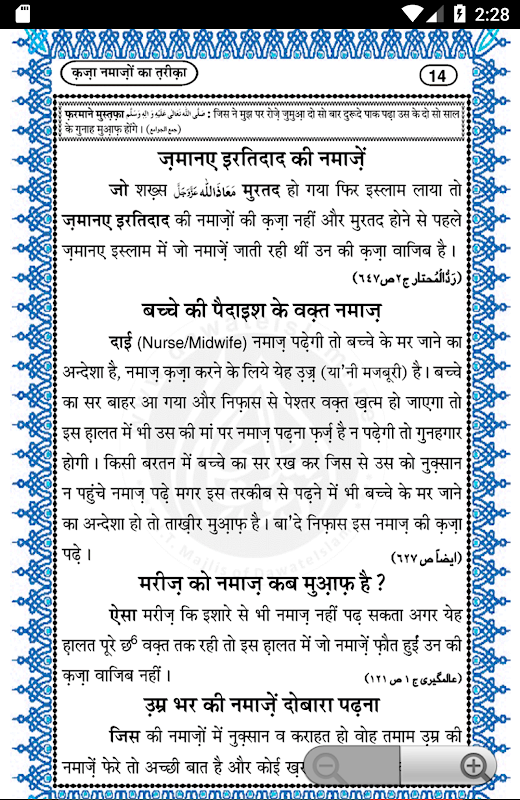 2:28
क़ज़ा नमाज़ों का त़रीक़ा
14
फ़रमाने मुस्त़फ़ा صَلَّى اللهُ تَعَالٰى عَلَيْهِ وَاٰلِهٖ وَسَلَّم : जिस ने मुझ पर रोज़े जुमुआ़ दो सो बार दुरूदे पाक पढ़ा उस के दो सो साल
के गुनाह मुआ़फ़ होंगे । (جمع الجوامع)
ज़मानए इरतिदाद की नमाज़ें
जो शख़्स مَعَاذَاللّٰه عَزَّوَجَلَّ मुरतद हो गया फिर इस्लाम लाया तो
ज़मानए इरतिदाद की नमाज़ों की क़ज़ा नहीं और मुरतद होने से पहले
ज़मानए इस्लाम में जो नमाज़ें जाती रही थीं उन की क़ज़ा वाजिब है ।
(رَدُّالْمُحتار ج٢ص٦٤٧)
बच्चे की पैदाइश के वक़्त नमाज़
दाई (Nurse/Midwife) नमाज़ पढ़ेगी तो बच्चे के मर जाने का
अन्देशा है, नमाज़ क़ज़ा करने के लिये येह उ़ज़्र (या'नी मजबूरी) है । बच्चे
का सर बाहर आ गया और निफ़ास से पेश्तर वक़्त ख़त्म हो जाएगा तो
इस ह़ालत में भी उस की मां पर नमाज़ पढ़ना फ़र्ज़ है न पढ़ेगी तो गुनहगार
होगी । किसी बरतन में बच्चे का सर रख कर जिस से उस को नुक़्सान
न पहुंचे नमाज़ पढ़े मगर इस तरकीब से पढ़ने में भी बच्चे के मर जाने
का अन्देशा हो तो ताख़ीर मुआ़फ़ है । बा'दे निफ़ास इस नमाज़ की क़ज़ा
पढ़े ।
(ايضاً ص ٦٢٧)
मरीज़ को नमाज़ कब मुआ़फ़ है ?
ऐसा मरीज़ कि इशारे से भी नमाज़ नहीं पढ़ सकता अगर येह
ह़ालत पूरे छ6 वक़्त तक रही तो इस ह़ालत में जो नमाज़ें फ़ौत हुईं उन की
क़ज़ा वाजिब नहीं ।
(عالمگیری ج ١ ص ١٢١)
उ़म्र भर की नमाज़ें दोबारा पढ़ना
जिस की नमाज़ों में नुक़्सान व कराहत हो वोह तमाम उ़म्र की
नमाज़ें फेरे तो अच्छी बात है और कोई